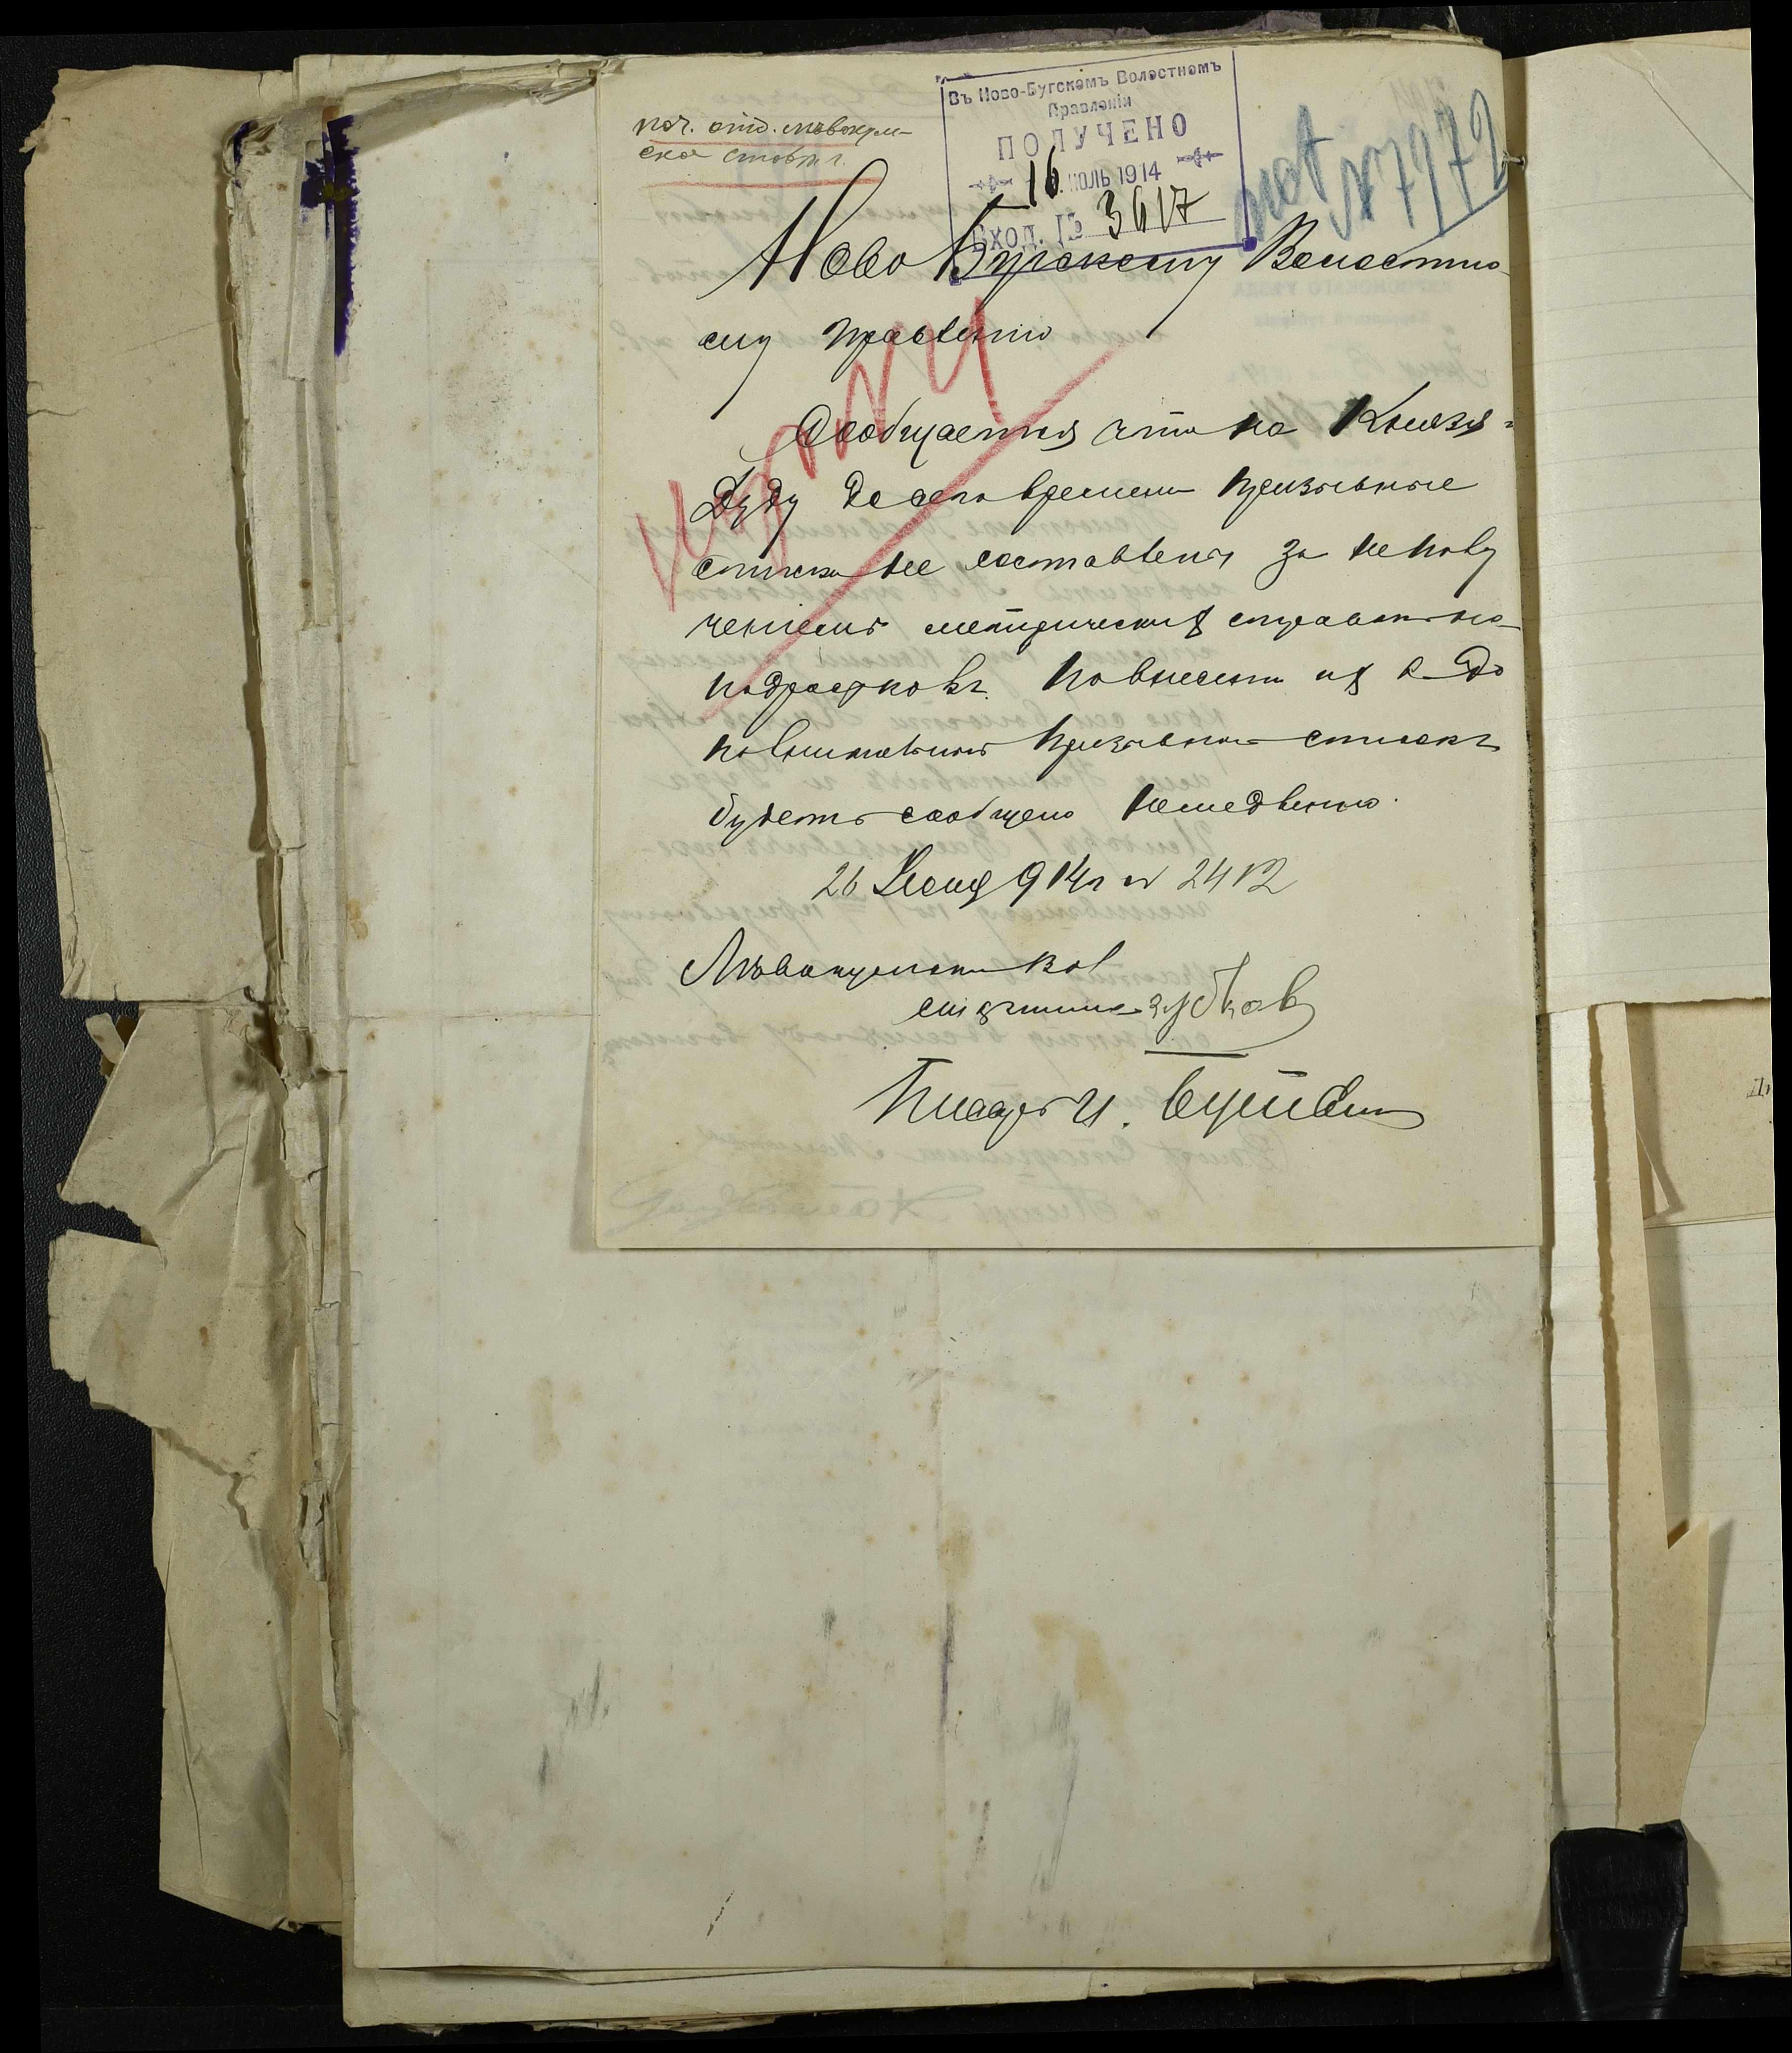 поч. отд. Львокум-
ское ставр. г.
Въ Ново-Бугскомъ Волостномъ
Правленіи
ПОЛУЧЕНО
16 ІЮЛЬ 1914
Вход. № 3617
№ 7972
Ново Бугскому Волостно-
му Правленію
Сообщается что на Князя-
Дуду до сего времени призывные
списки не составлены за неполу
ченіемъ метрическихъ справокъ на
подростковъ. По внесеніи их в до
полнительный призывной списокъ
будетъ сообщено немедленно.
26 Іюня 914 г № 2412
Львокумскій Вол
старшина Зубков
Писарь И.